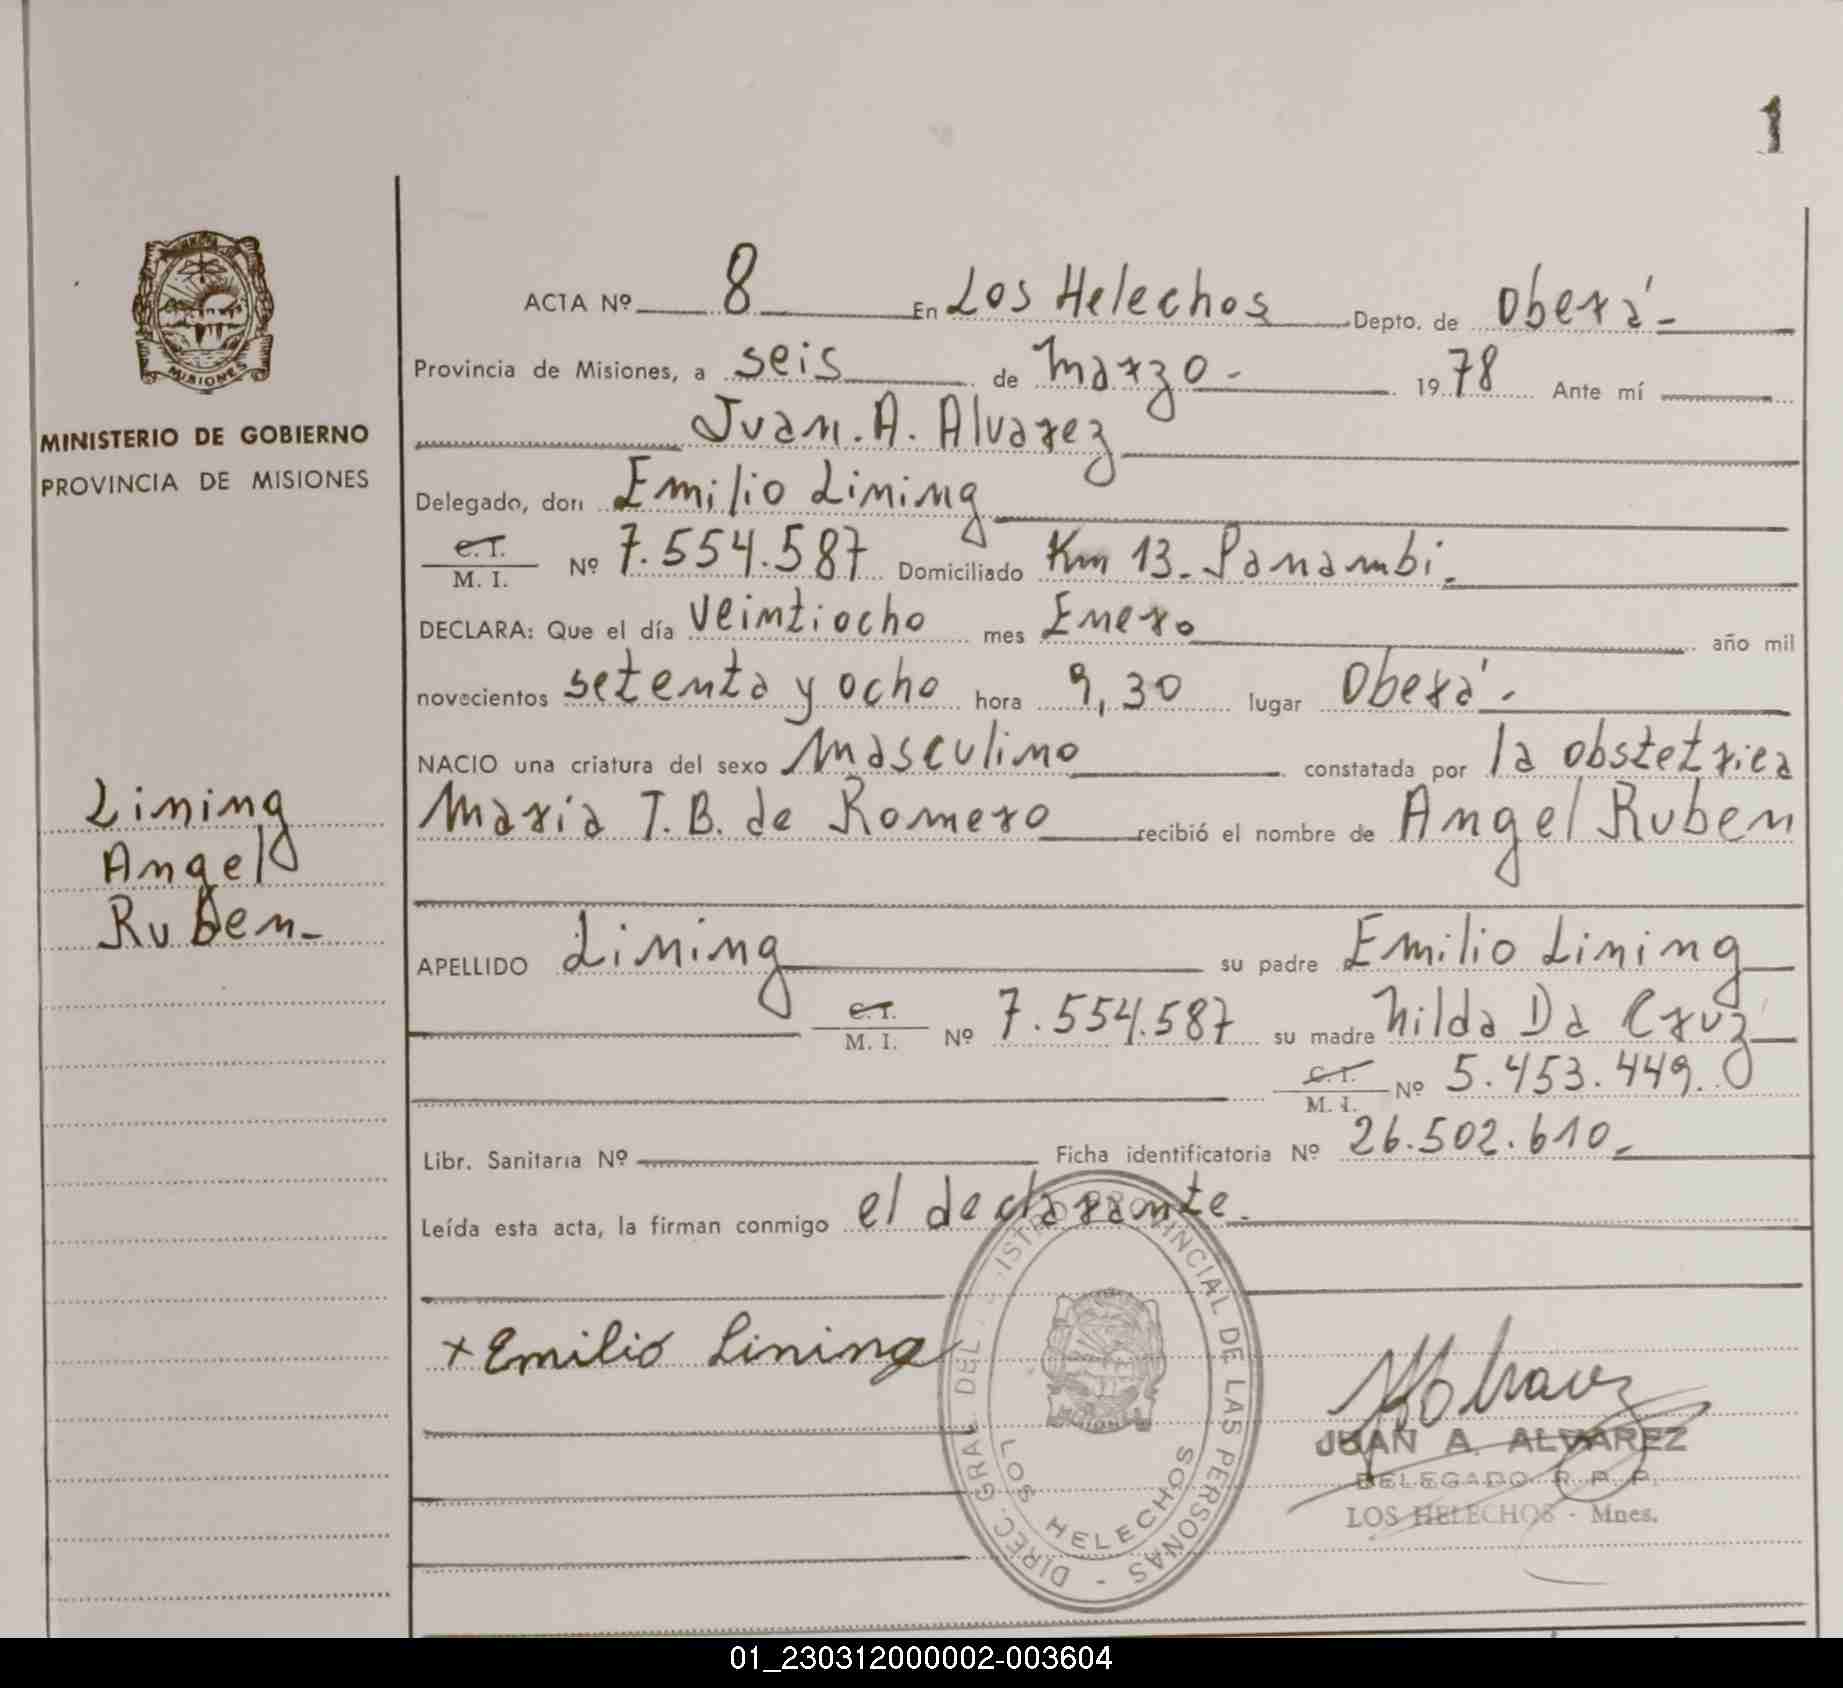 1
ACTA Nº 8 En Los Helechos Depto. de Oberá-
Provincia de Misiones, a seis de Marzo- 1978 Ante mí
Juan. A. Alvarez
MINISTERIO DE GOBIERNO
PROVINCIA DE MISIONES
MISIONES
Delegado, don Emilio Lining
C.I.
M. I. Nº 7.554.587 Domiciliado Km 13. Panambi.
DECLARA: Que el día veintiocho mes Enero año mil
novecientos setenta y ocho hora 9,30 lugar Oberá.
NACIO una criatura del sexo Masculino constatada por la obstetrica
Maria T. B. de Romero recibió el nombre de Angel Ruben
Lining
Angel
Ruben-
APELLIDO Lining su padre Emilio Lining
C.I.
M. I. Nº 7.554.587 su madre Nilda Da Cruz
C.I.
M. I. Nº 5.453.449.
Libr. Sanitaria Nº Ficha identificatoria Nº 26.502.610-
Leída esta acta, la firman conmigo el declarante.
+ Emilio Lining
DIREC. GRAL. DEL PROVINCIAL DE LAS PERSONAS -
LOS HELECHOS
JUAN A. ALVAREZ
DELEGADO R. P. P.
LOS HELECHOS - Mnes.
01_230312000002-003604